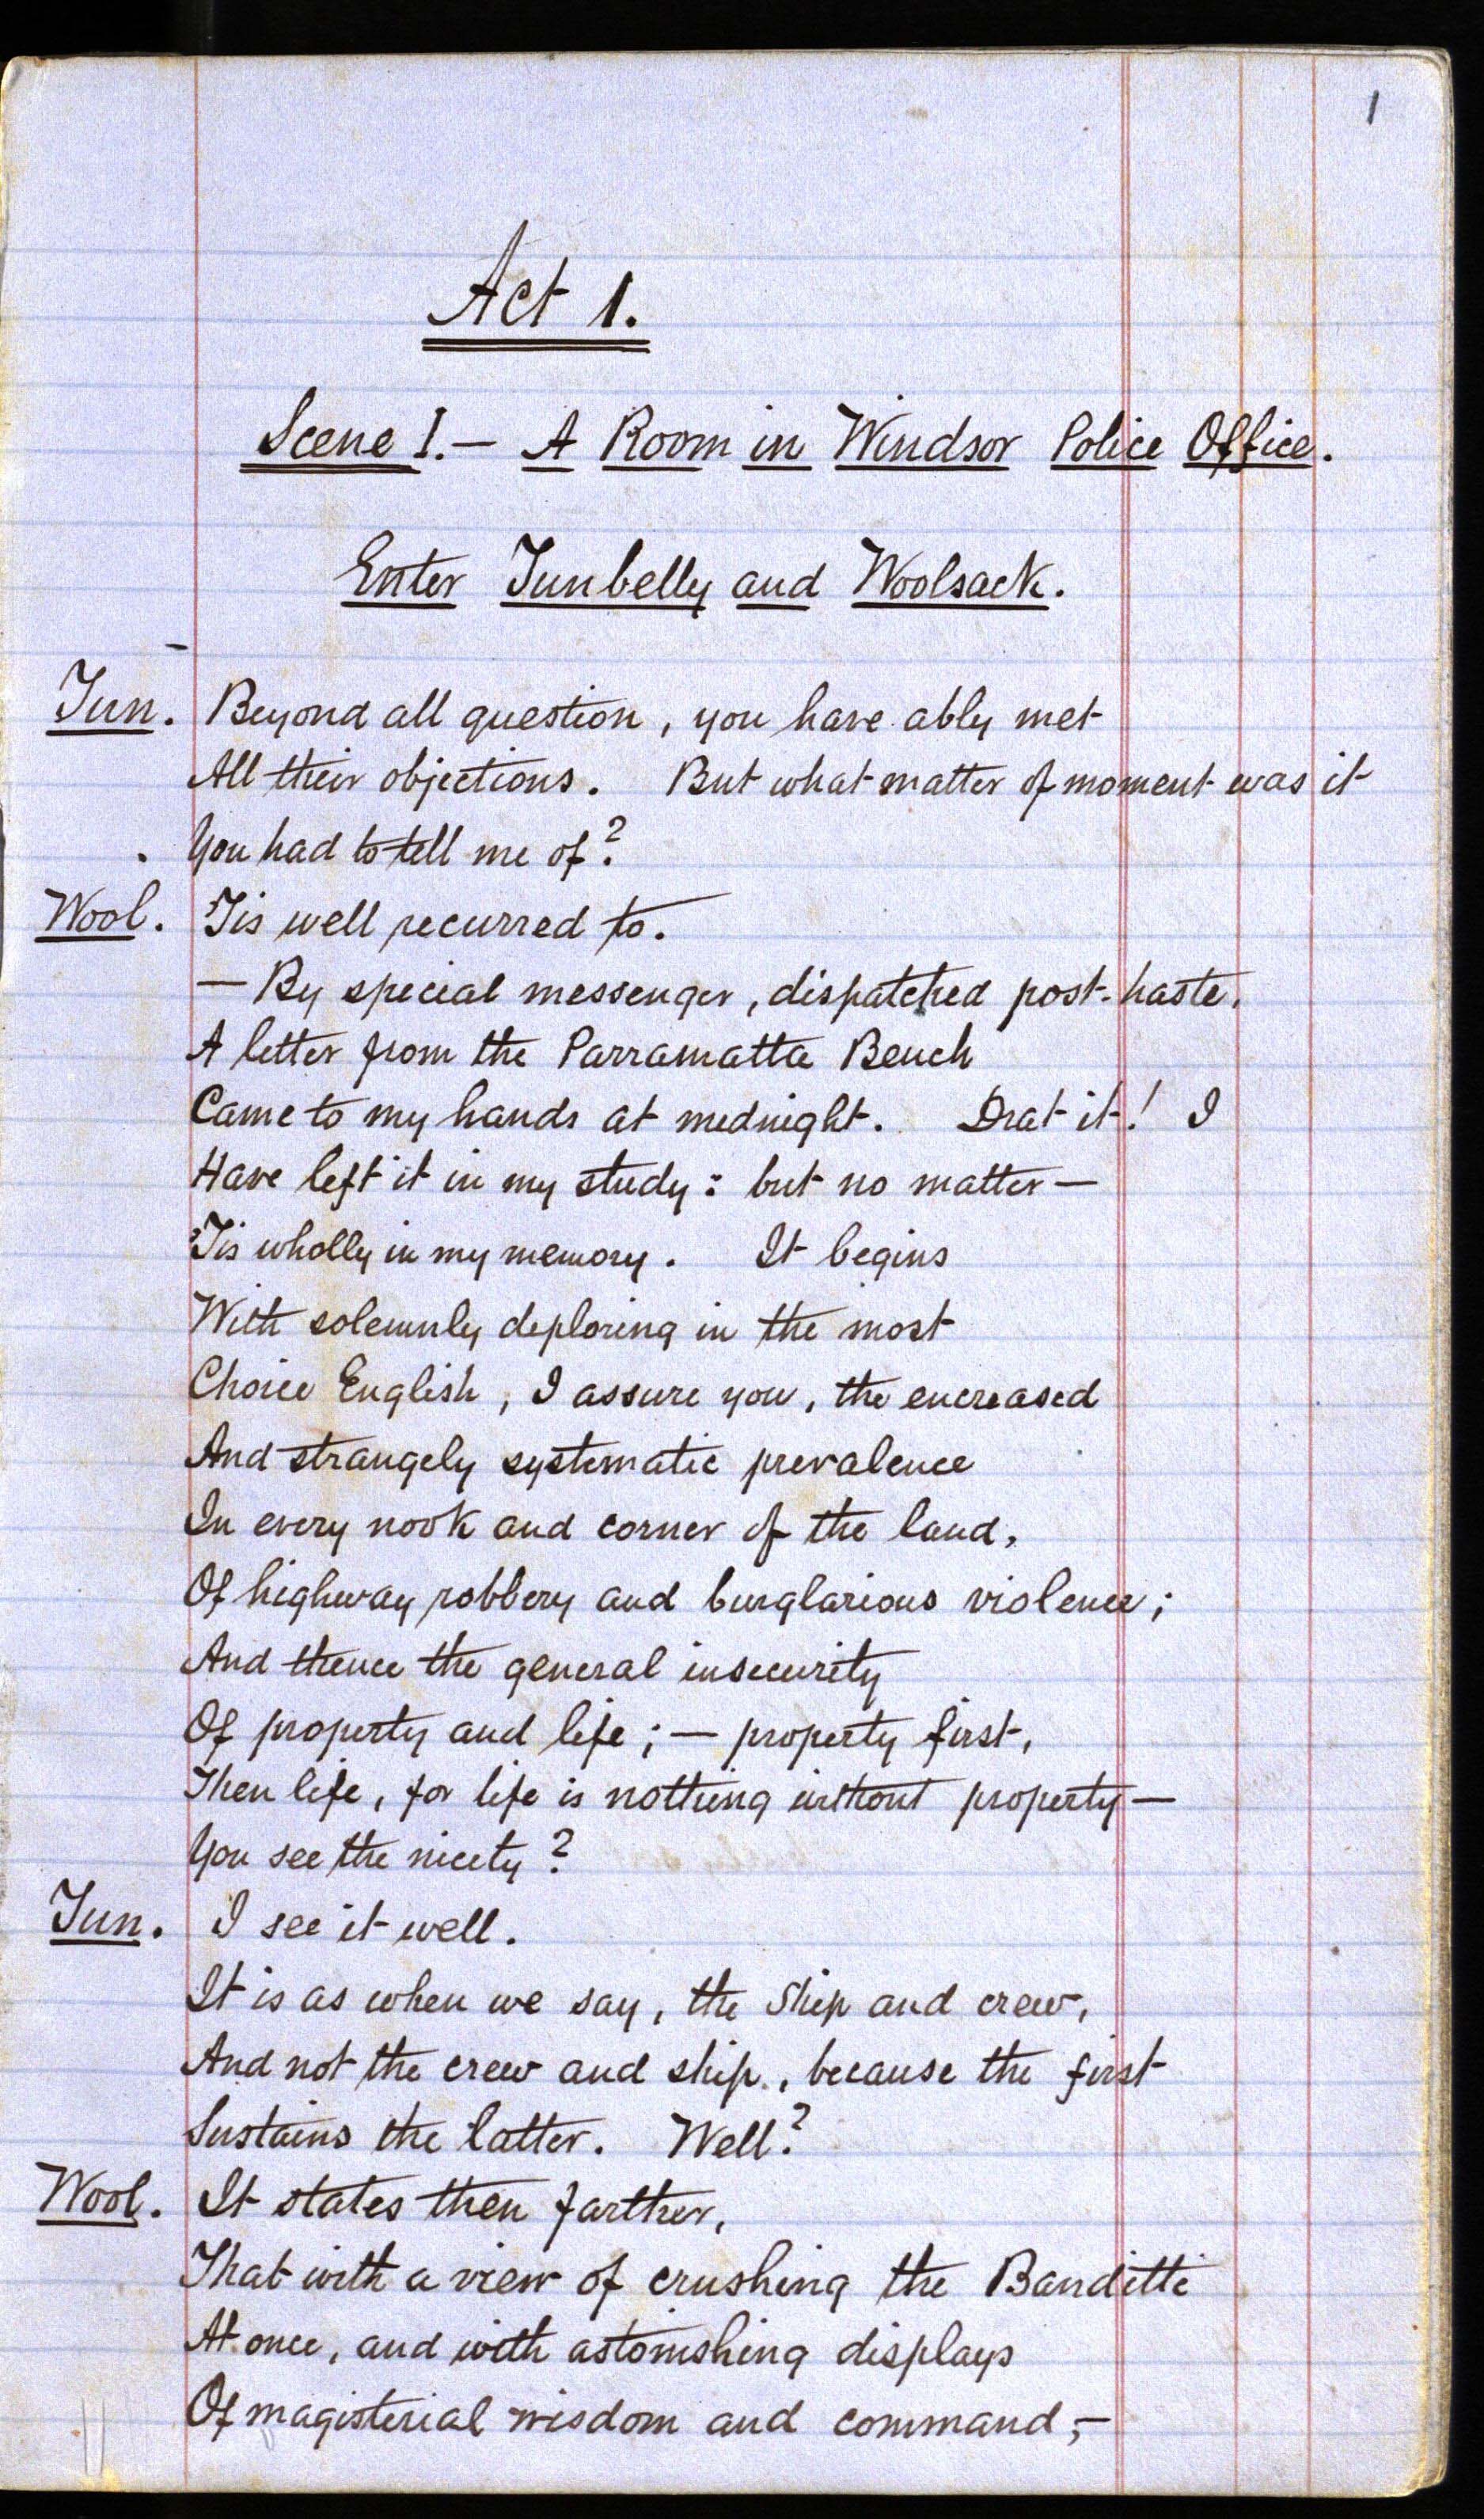 1
Act 1.
Scene I.— A Room in Windsor Police Office.
Enter Tunbelly and Woolsack.
Tun. Beyond all question, you have ably met
All their objections. But what matter of moment was it
You had to tell me of?
Wool. 'Tis well recurred to.
— By special messenger, dispatched post-haste,
A letter from the Parramatta Bench
Came to my hands at midnight. Drat it! I
Have left it in my study: but no matter—
'Tis wholly in my memory. It begins
With solemnly deploring in the most
Choice English, I assure you, the encreased
And strangely systematic prevalence
In every nook and corner of the land,
Of highway robbery and burglarious violence;
And thence the general insecurity
Of property and life;— property first,
Then life, for life is nothing without property—
You see the nicety?
Tun. I see it well.
It is as when we say, the Ship and crew,
And not the crew and ship, because the first
Sustains the latter. Well?
Wool. It states then farther,
That with a view of crushing the Banditti
At once, and with astonishing displays
Of magisterial wisdom and command,—